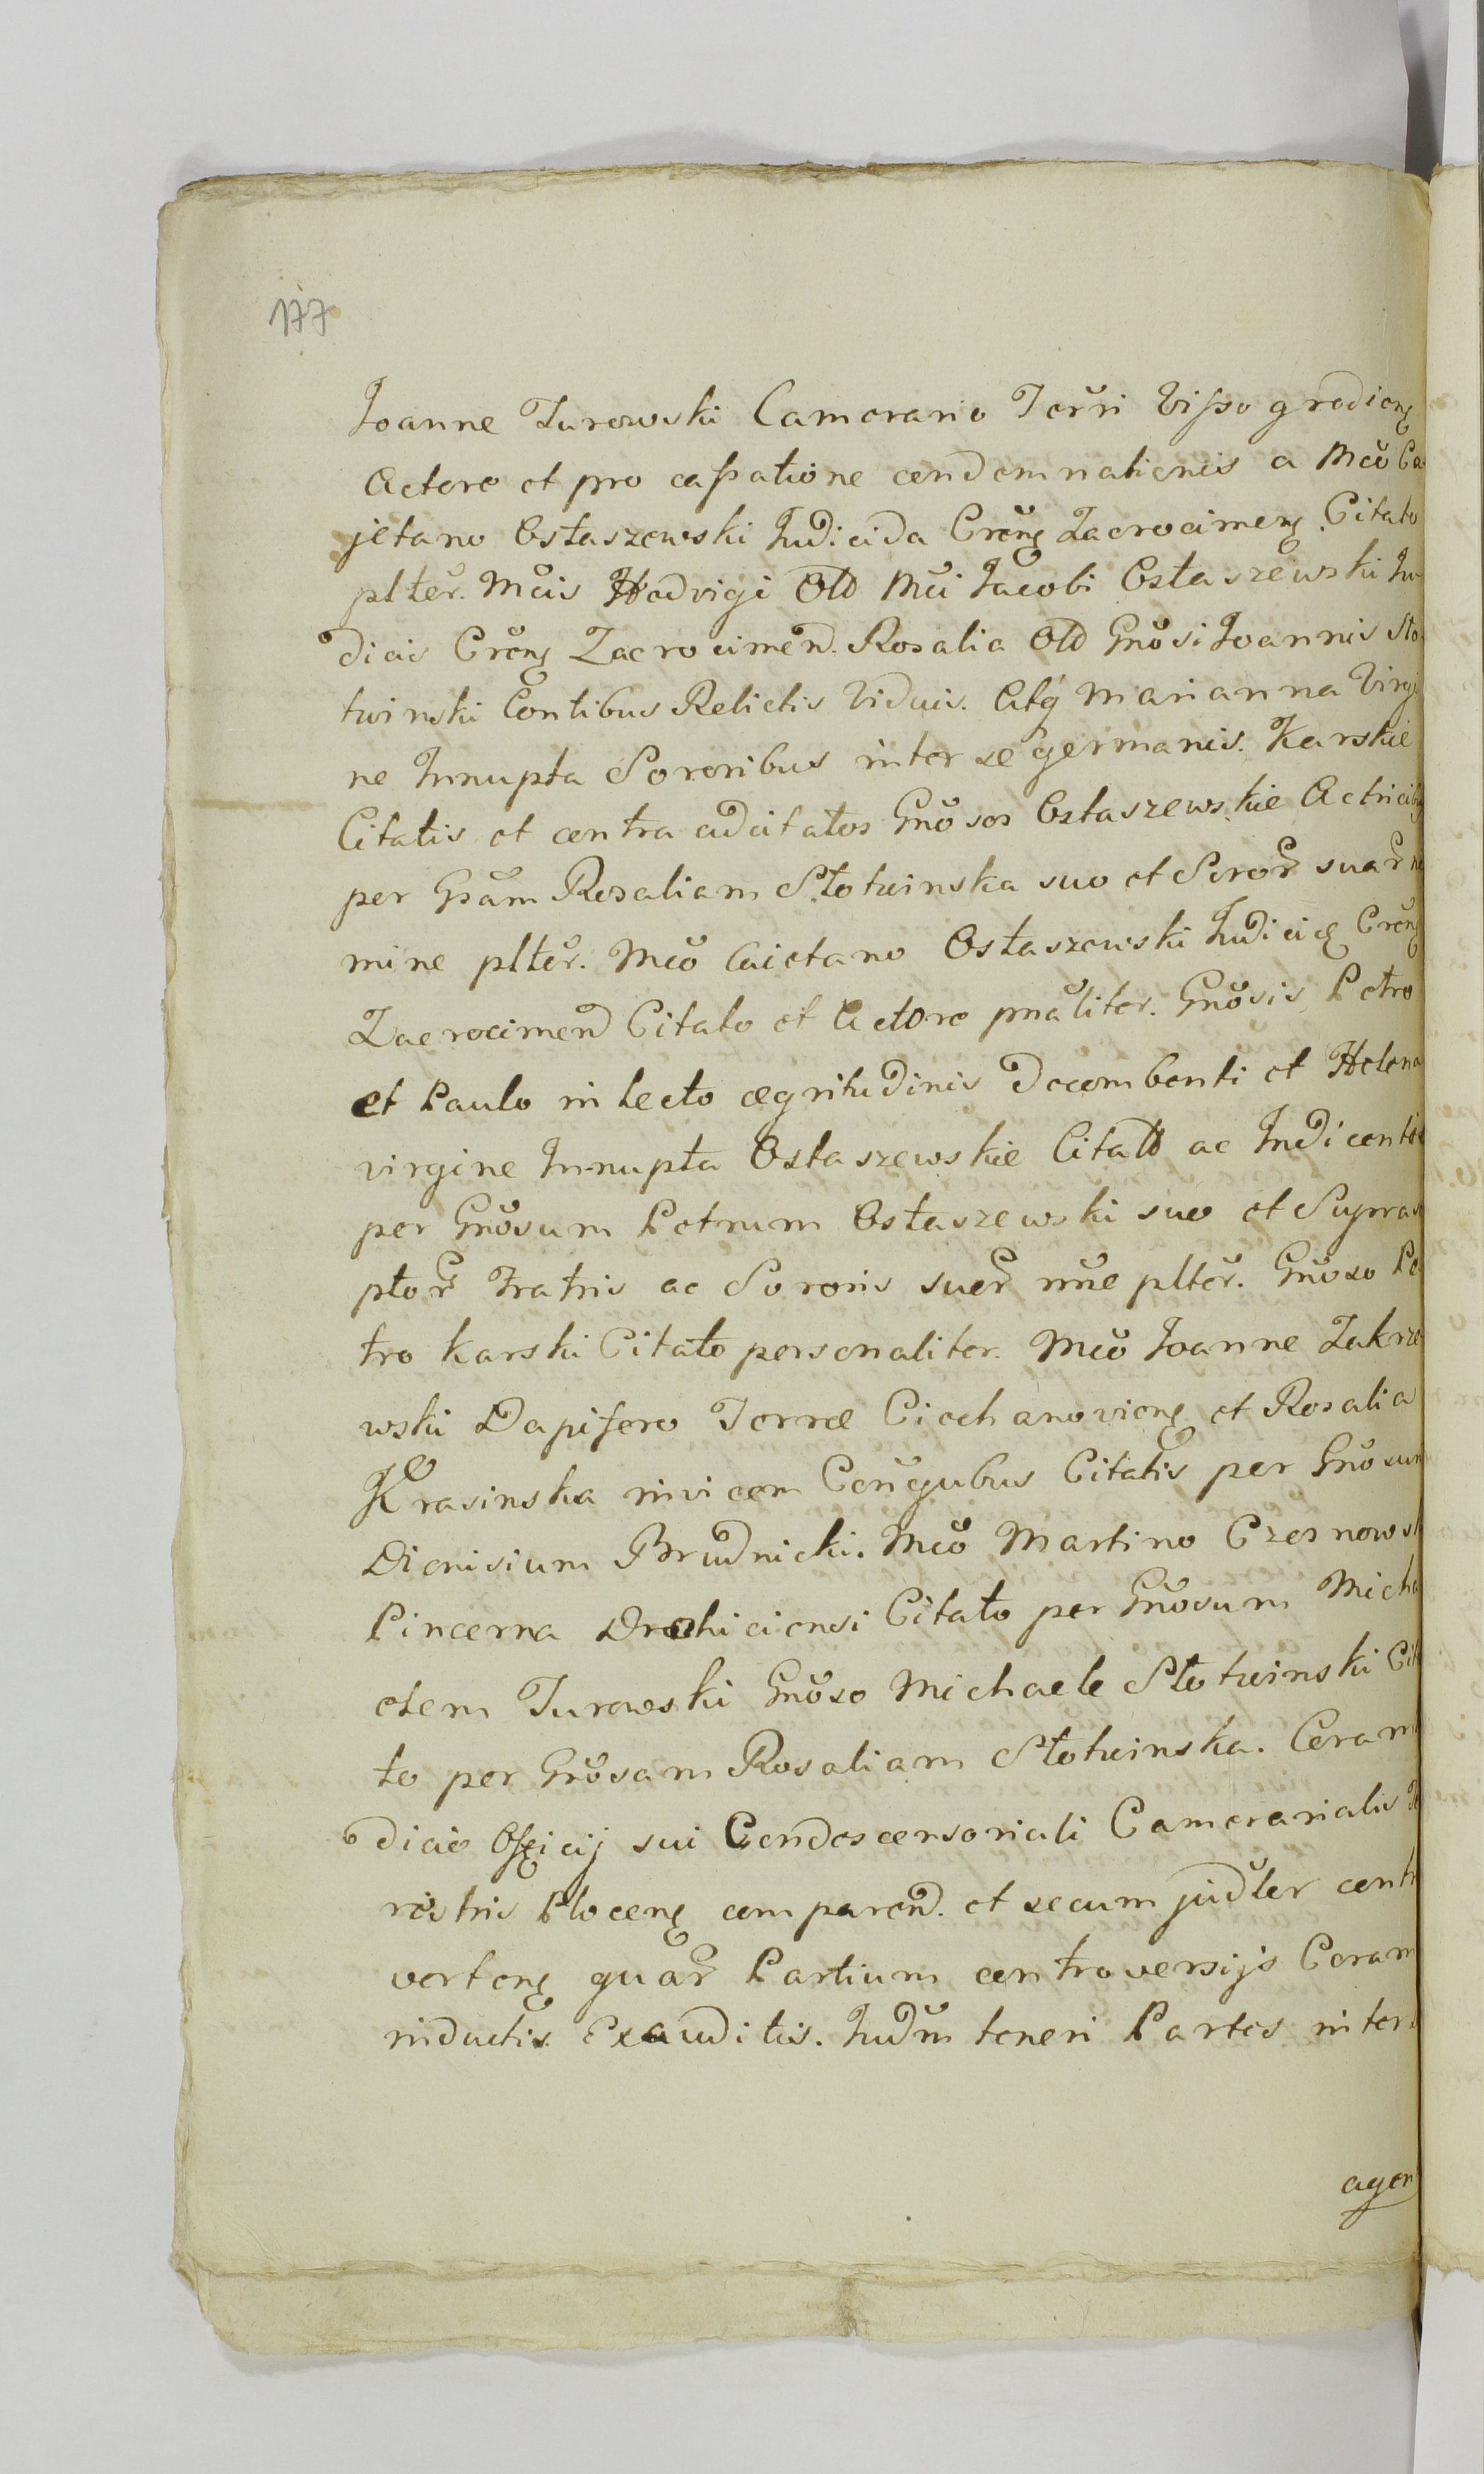 177
Joanne Turowski Camerario Terri Visso gradieng
Actore et pro cassatione condemnationis a Mco Ca
jetano Ostaszewski Judicida Creng Zacrocimeng Citato
plter. Mcis Hedvigi Old Mci Jacobi Ostaszewski Ju
dicis Creng Zacrocimend. Rosalia Old Gnosi Joannis Sło
twinski Contibus Relictis Viduis. Atq Marianna Virgi
ne Innupta Sororibus inter se germanis. Karskie
Citatis et contra adcitatos Gnosos Ostaszewskie Actricib
per Gsam Rosaliam Słotwinska suo et Soror suar no
mine plter. Mco Caietano Ostaszewski Judicie Creng
Zacrocimend Citato et Actore pnaliter. Gnosis Petro
et Paulo in lecto ægritudinis Decombenti et Helena
virgine Innupta Ostaszewskie Citato ac Indicentib
per Gnosum Petrum Ostaszewski suo et Supras
ptor Fratris ac Sororis suor nne plter. Gnoso Pe
tro Karski Citato personaliter. Mco Joanne Zakrze
wski Dapifero Terræ Ciechanovieng et Rosalia
Krasinska invicem Congubus Citatis per Gnosum
Dionisium Brudnicki. Mco Martino Czosnowsk
Pincerna Drohiciensi Citato per Gnosum Micha
elem Turowski Gnoso Michaele Słotwinski Cita
to per Gnosam Rosaliam Słotwinska. Coram
dicio Officij sui Condescensoriali Camerarialis
ristris Ploceng comparend. et secum judler contr
verteng quar Partium controversijs Coram
inductis Exauditis. Judm teneri Partes inter
agen